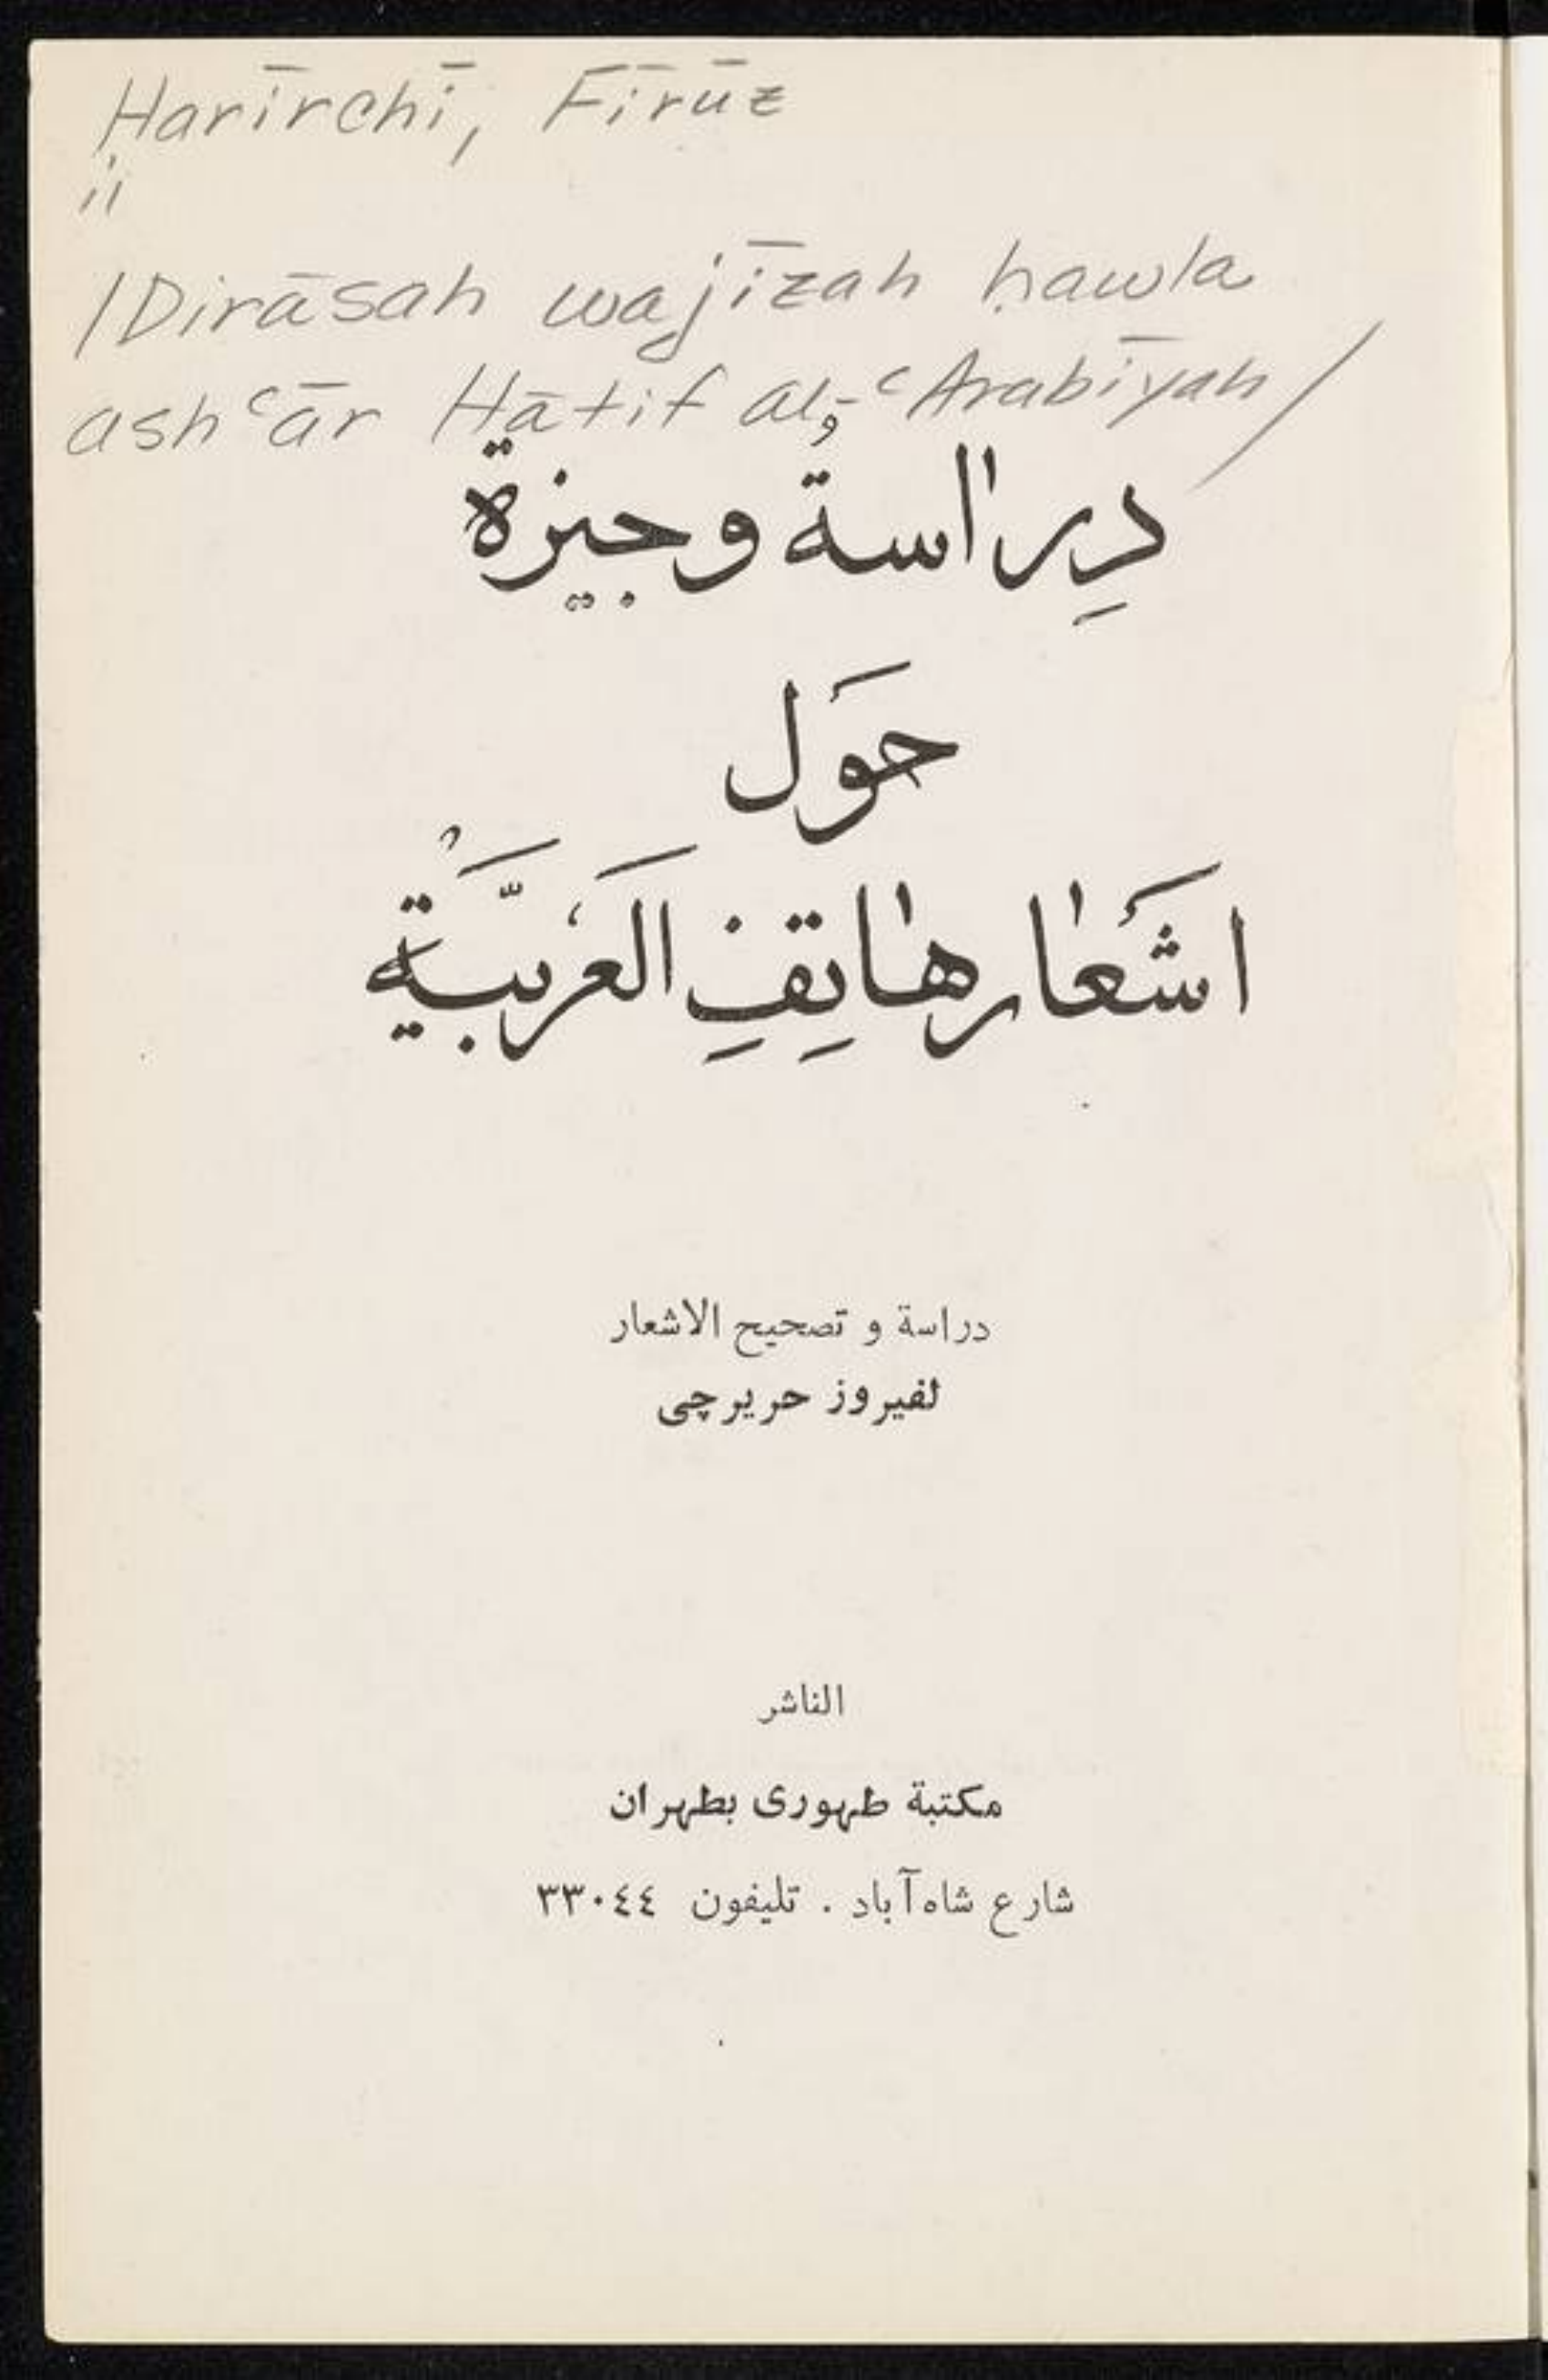 Harīrchī, Fīrūz
11
/Dirāsah wajīzah ḥawla
ashʿār Hātif al-ʿArabīyah/
دِراسةٌ وجيزة
حَول
اشَعار هاتِفِ العَرَبيَّة
دراسة و تصحيح الاشعار
لفيروز حريرچى
الناشر
مكتبة طهورى بطهران
شارع شاه‌آباد . تليفون ٣٣٠٤٤